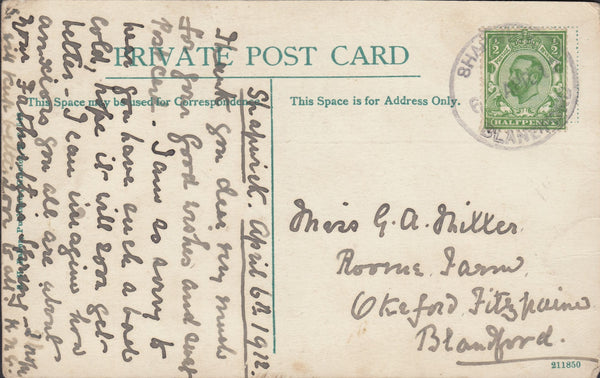 PRIVATE POST CARD
This Space may be used for Correspondence.
This Space is for Address Only.
HALFPENNY
BLAN
Shapwick. April 6th 1912.
Thank you dear very much
for your good wishes and
I am so sorry to
hear you have such a bad
cold, hope it will soon get
better - I can imagine how
anxious you all are about
your Father
Miss G. A. Miller
Roome Farm
Okeford Fitzpaine
Blandford.
211850